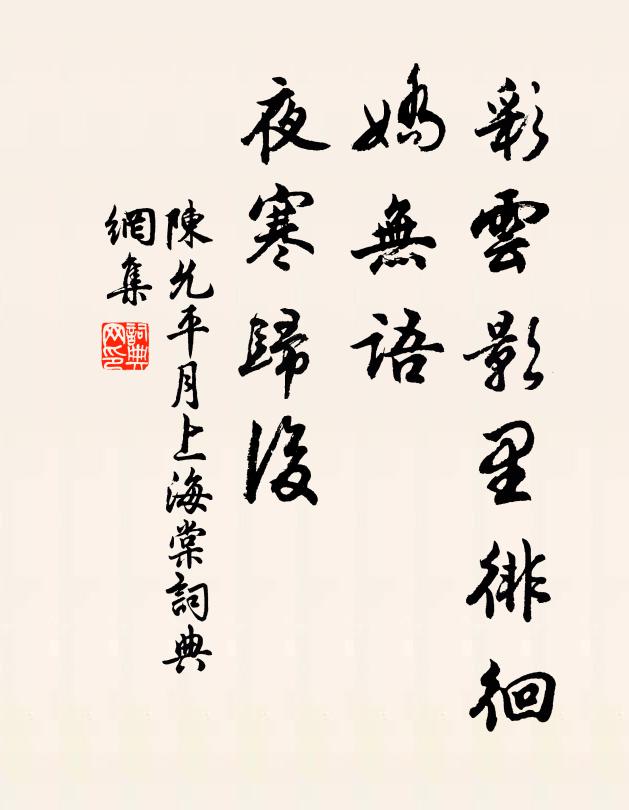 彩雲影里徘徊
嬌無語
夜寒歸後
陳允平月上海棠詞典
網集
詞典
网印